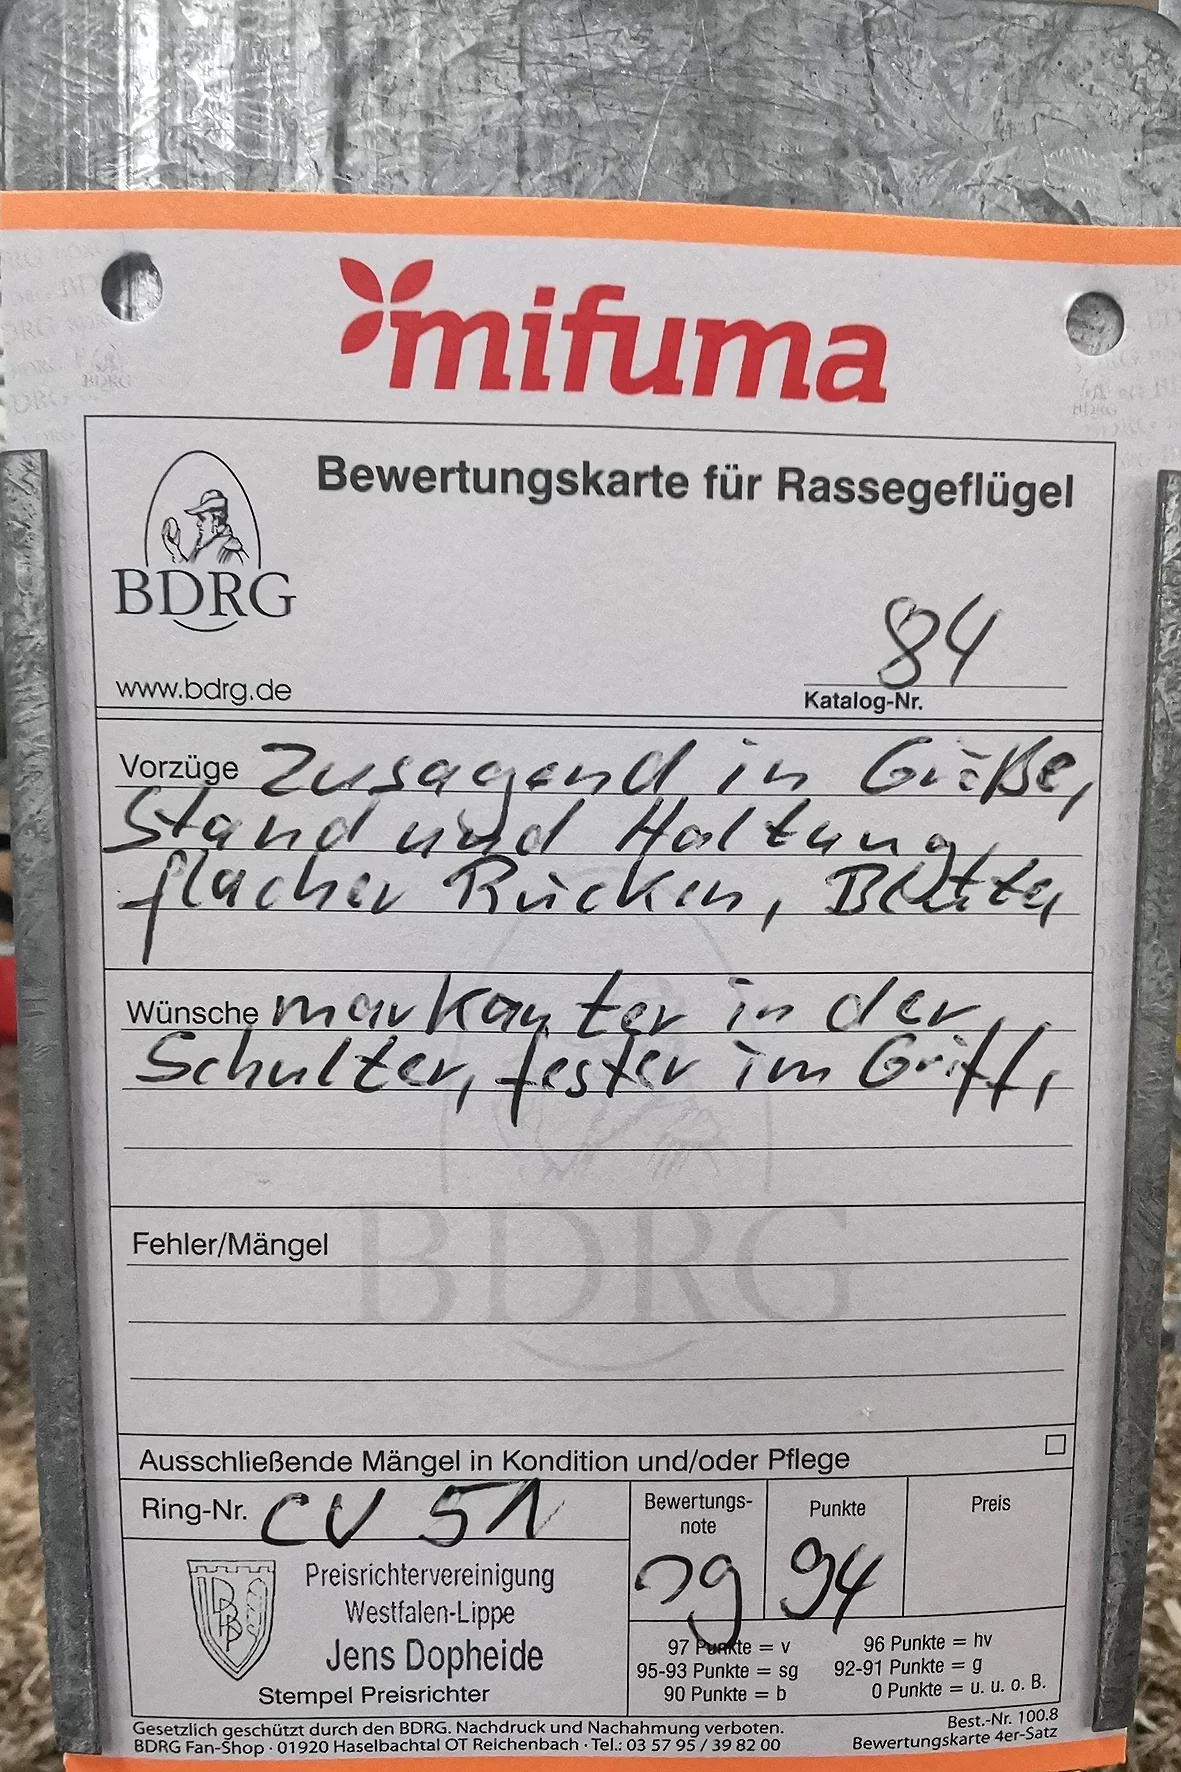 mifuma
Bewertungskarte für Rassegeflügel
BDRG
www.bdrg.de
84
Katalog-Nr.
Vorzüge Zusagend in Größe,
Stand und Haltung,
flacher Rücken,
Wünsche markanter in der
Schulter, fester im Griff,
BDRG
Fehler/Mängel
Ausschließende Mängel in Kondition und/oder Pflege
Ring-Nr. CV 51
Bewertungs-
note
sg
Punkte
94
Preis
Preisrichtervereinigung
Westfalen-Lippe
Jens Dopheide
Stempel Preisrichter
97 Punkte = v
96 Punkte = hv
95-93 Punkte = sg
92-91 Punkte = g
90 Punkte = b
0 Punkte = u. u. o. B.
Gesetzlich geschützt durch den BDRG. Nachdruck und Nachahmung verboten.
BDRG Fan-Shop · 01920 Haselbachtal OT Reichenbach · Tel.: 03 57 95 / 39 82 00
Best.-Nr. 100.8
Bewertungskarte 4er-Satz